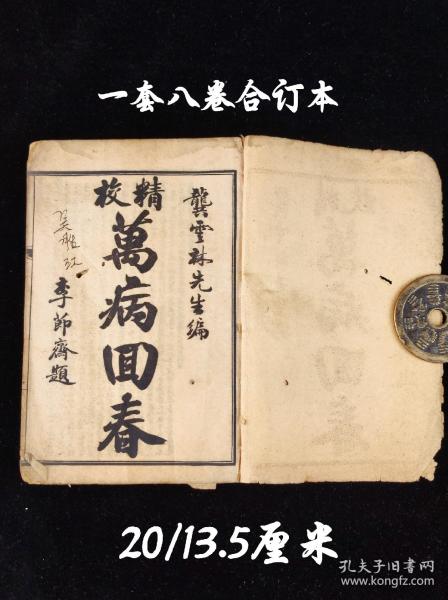 一套八卷合订本
龔雲林先生編
精校
萬病回春
李節齋題
20/13.5厘米
孔夫子旧书网
www.kongfz.com